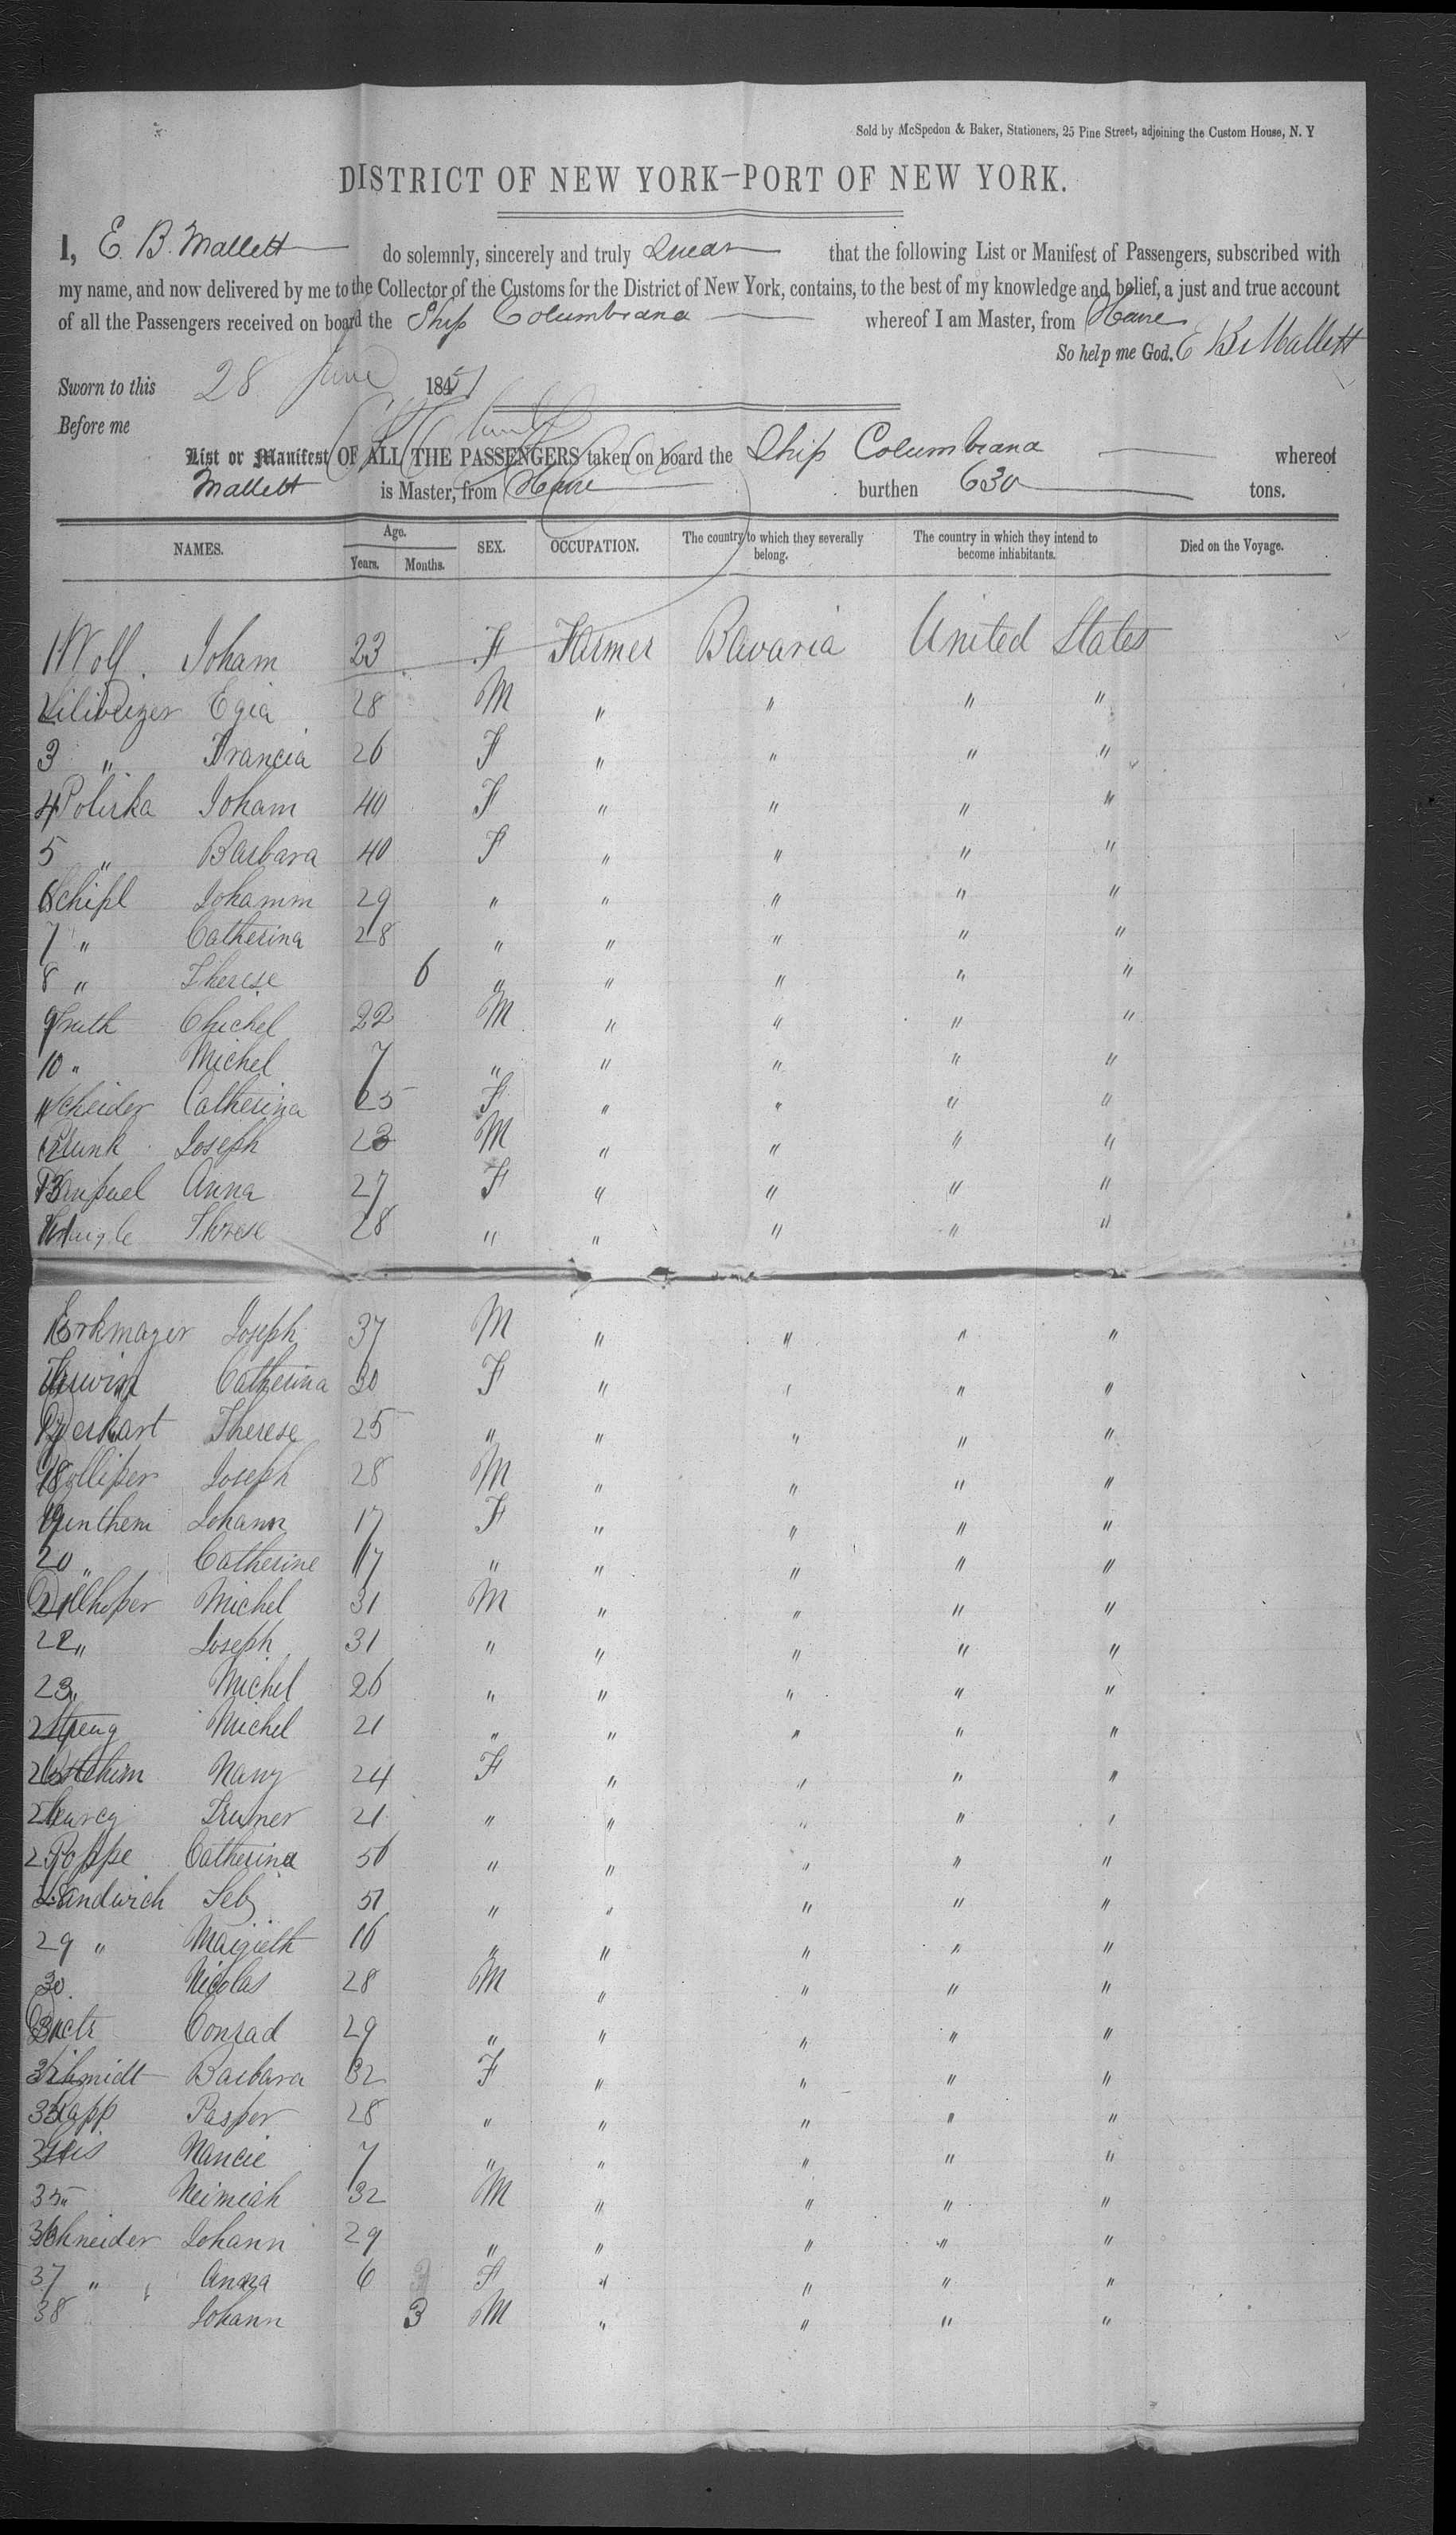 Sold by McSpedon & Baker, Stationers, 25 Pine Street, adjoining the Custom House, N. Y
DISTRICT OF NEW YORK—PORT OF NEW YORK.
I, E. B. Mallett do solemnly, sincerely and truly Swear that the following List or Manifest of Passengers, subscribed with
my name, and now delivered by me to the Collector of the Customs for the District of New York, contains, to the best of my knowledge and belief, a just and true account
of all the Passengers received on board the Ship Columbiana whereof I am Master, from Havre
So help me God. E B Mallett
Sworn to this 28 June 1851
Before me
List or Manifest OF ALL THE PASSENGERS taken on board the Ship Columbiana whereof
Mallett is Master, from Havre burthen 630 tons.
NAMES. Age. Years. Months. SEX. OCCUPATION. The country to which they severally belong. The country in which they intend to become inhabitants. Died on the Voyage.
1 Wolf Joham 23 F Farmer Bavaria United States
2 Egia 28 M " " " "
3 " Francia 26 F " " " "
4 Polirka Joham 40 F " " " "
5 " Barbara 40 F " " " "
6 Schipl Johamm 29 " " " " "
7 " Catherina 28 " " " " "
8 " Therese 6 " " " " "
9 Chichel 22 M " " " "
10 " Michel 7 " " " " "
11 Scheider Catherina 25 F " " " "
12 Joseph 23 M " " " "
13 Anna 27 F " " " "
14 Therese 28 " " " " "
15 Joseph 37 M " " " "
16 Catherina 30 F " " " "
17 Therese 25 " " " " "
18 Joseph 28 M " " " "
19 Johann 17 F " " " "
20 " Catherine 17 " " " " "
21 Michel 31 M " " " "
22 " Joseph 31 " " " " "
23 " Michel 26 " " " " "
24 Michel 21 " " " " "
25 Nany 24 F " " " "
26 21 " " " " "
27 Poppe Catherina 56 " " " " "
28 Sandwich Seb 51 " " " " "
29 " 16 " " " " "
30 Nicolas 28 M " " " "
31 Conrad 29 " " " " "
32 Schmidt Barbara 32 F " " " "
33 Rapp Pasper 28 " " " " "
34 Nancie 7 " " " " "
35 " Neimiah 32 M " " " "
36 Schneider Johann 29 " " " " "
37 " Anna 6 F " " " "
38 Johann 3 M " " " "